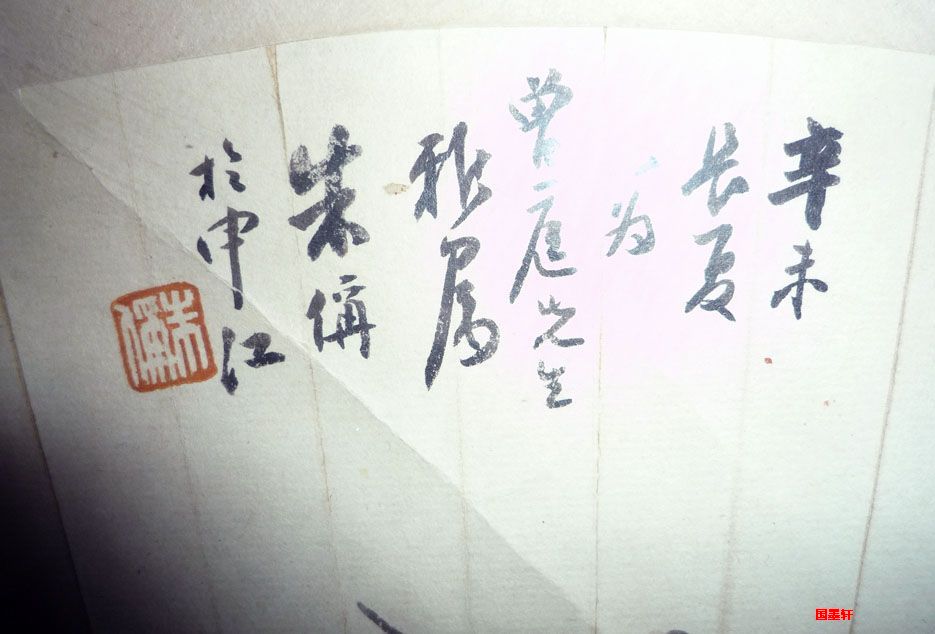 辛未
长夏
为
曾庭先生
雅属
朱偁
於申江
朱偁
国墨轩